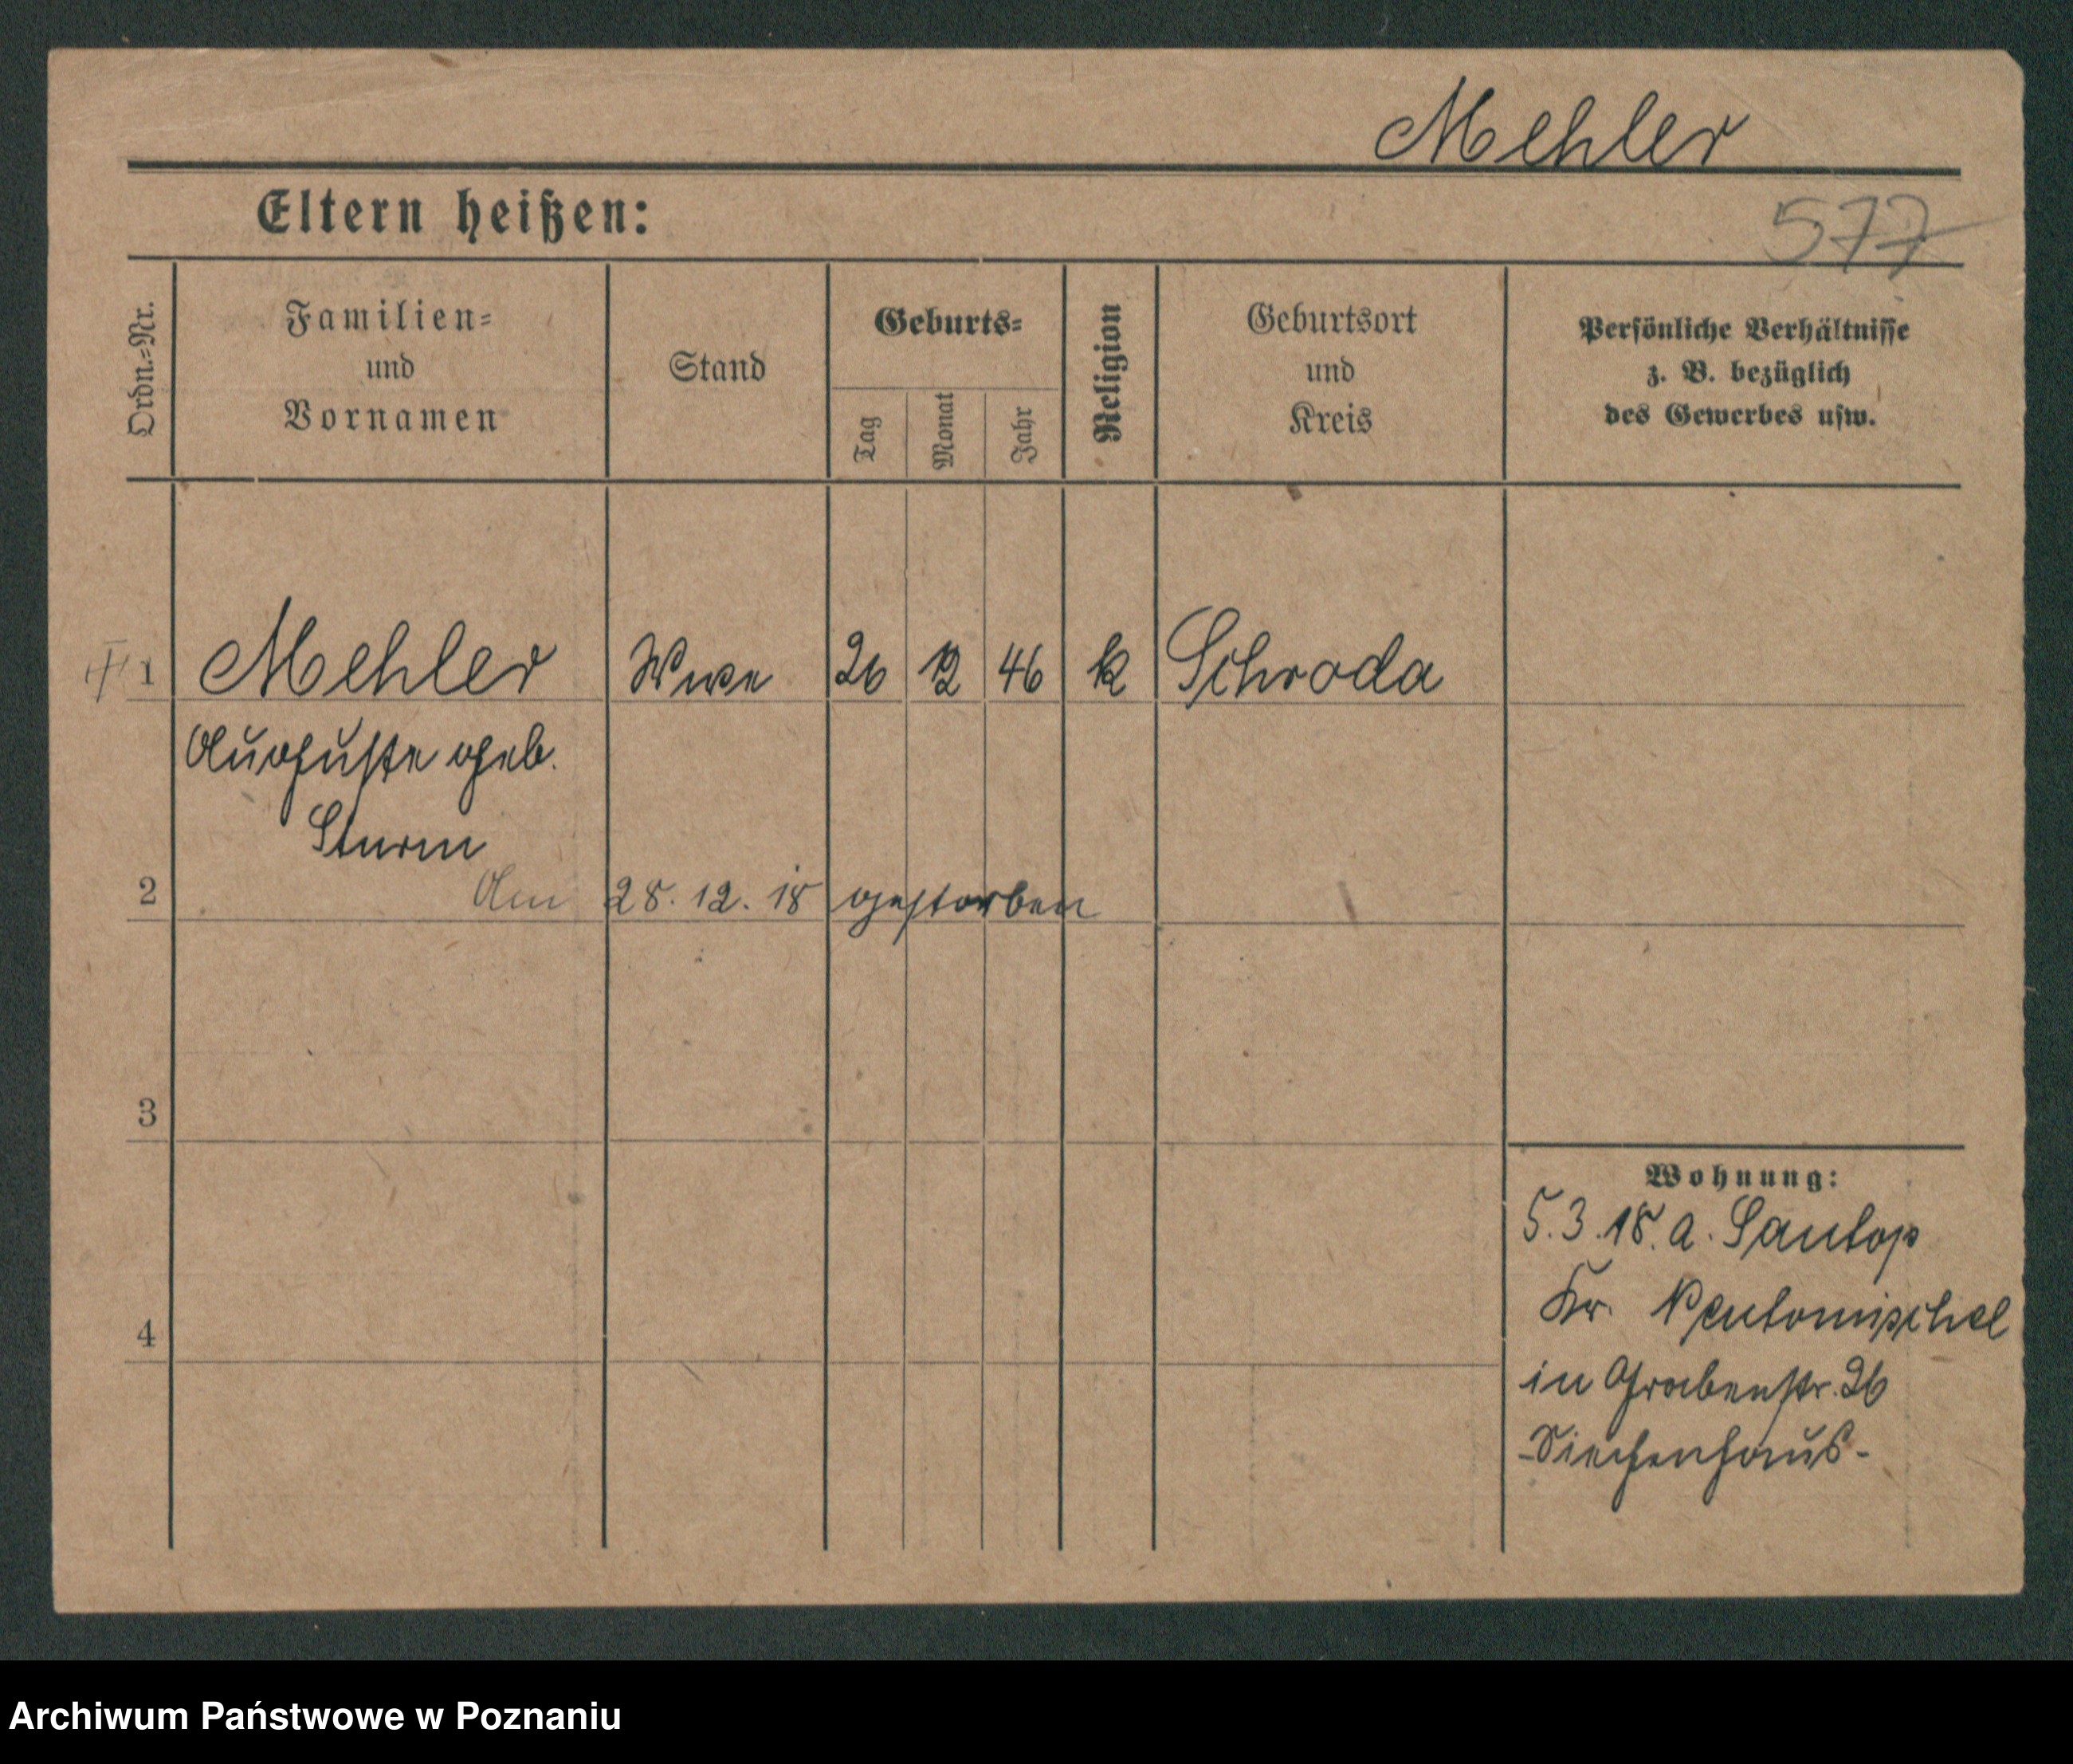 Mehler
Eltern heißen:
577
Ordn.=Nr.
Familien=
und
Vornamen
Stand
Geburts=
Tag
Monat
Jahr
Religion
Geburtsort
und
Kreis
Persönliche Verhältnisse
z. B. bezüglich
des Gewerbes usw.
1 Mehler Wwe 26 12 46 k Schroda
Auguste geb.
Sturm
2 Am 28. 12. 18 gestorben
3
4
Wohnung:
5.3.18. a. Santop
Kr. Neutomischel
in Grabenstr. 26
-Siechenhaus-
Archiwum Państwowe w Poznaniu